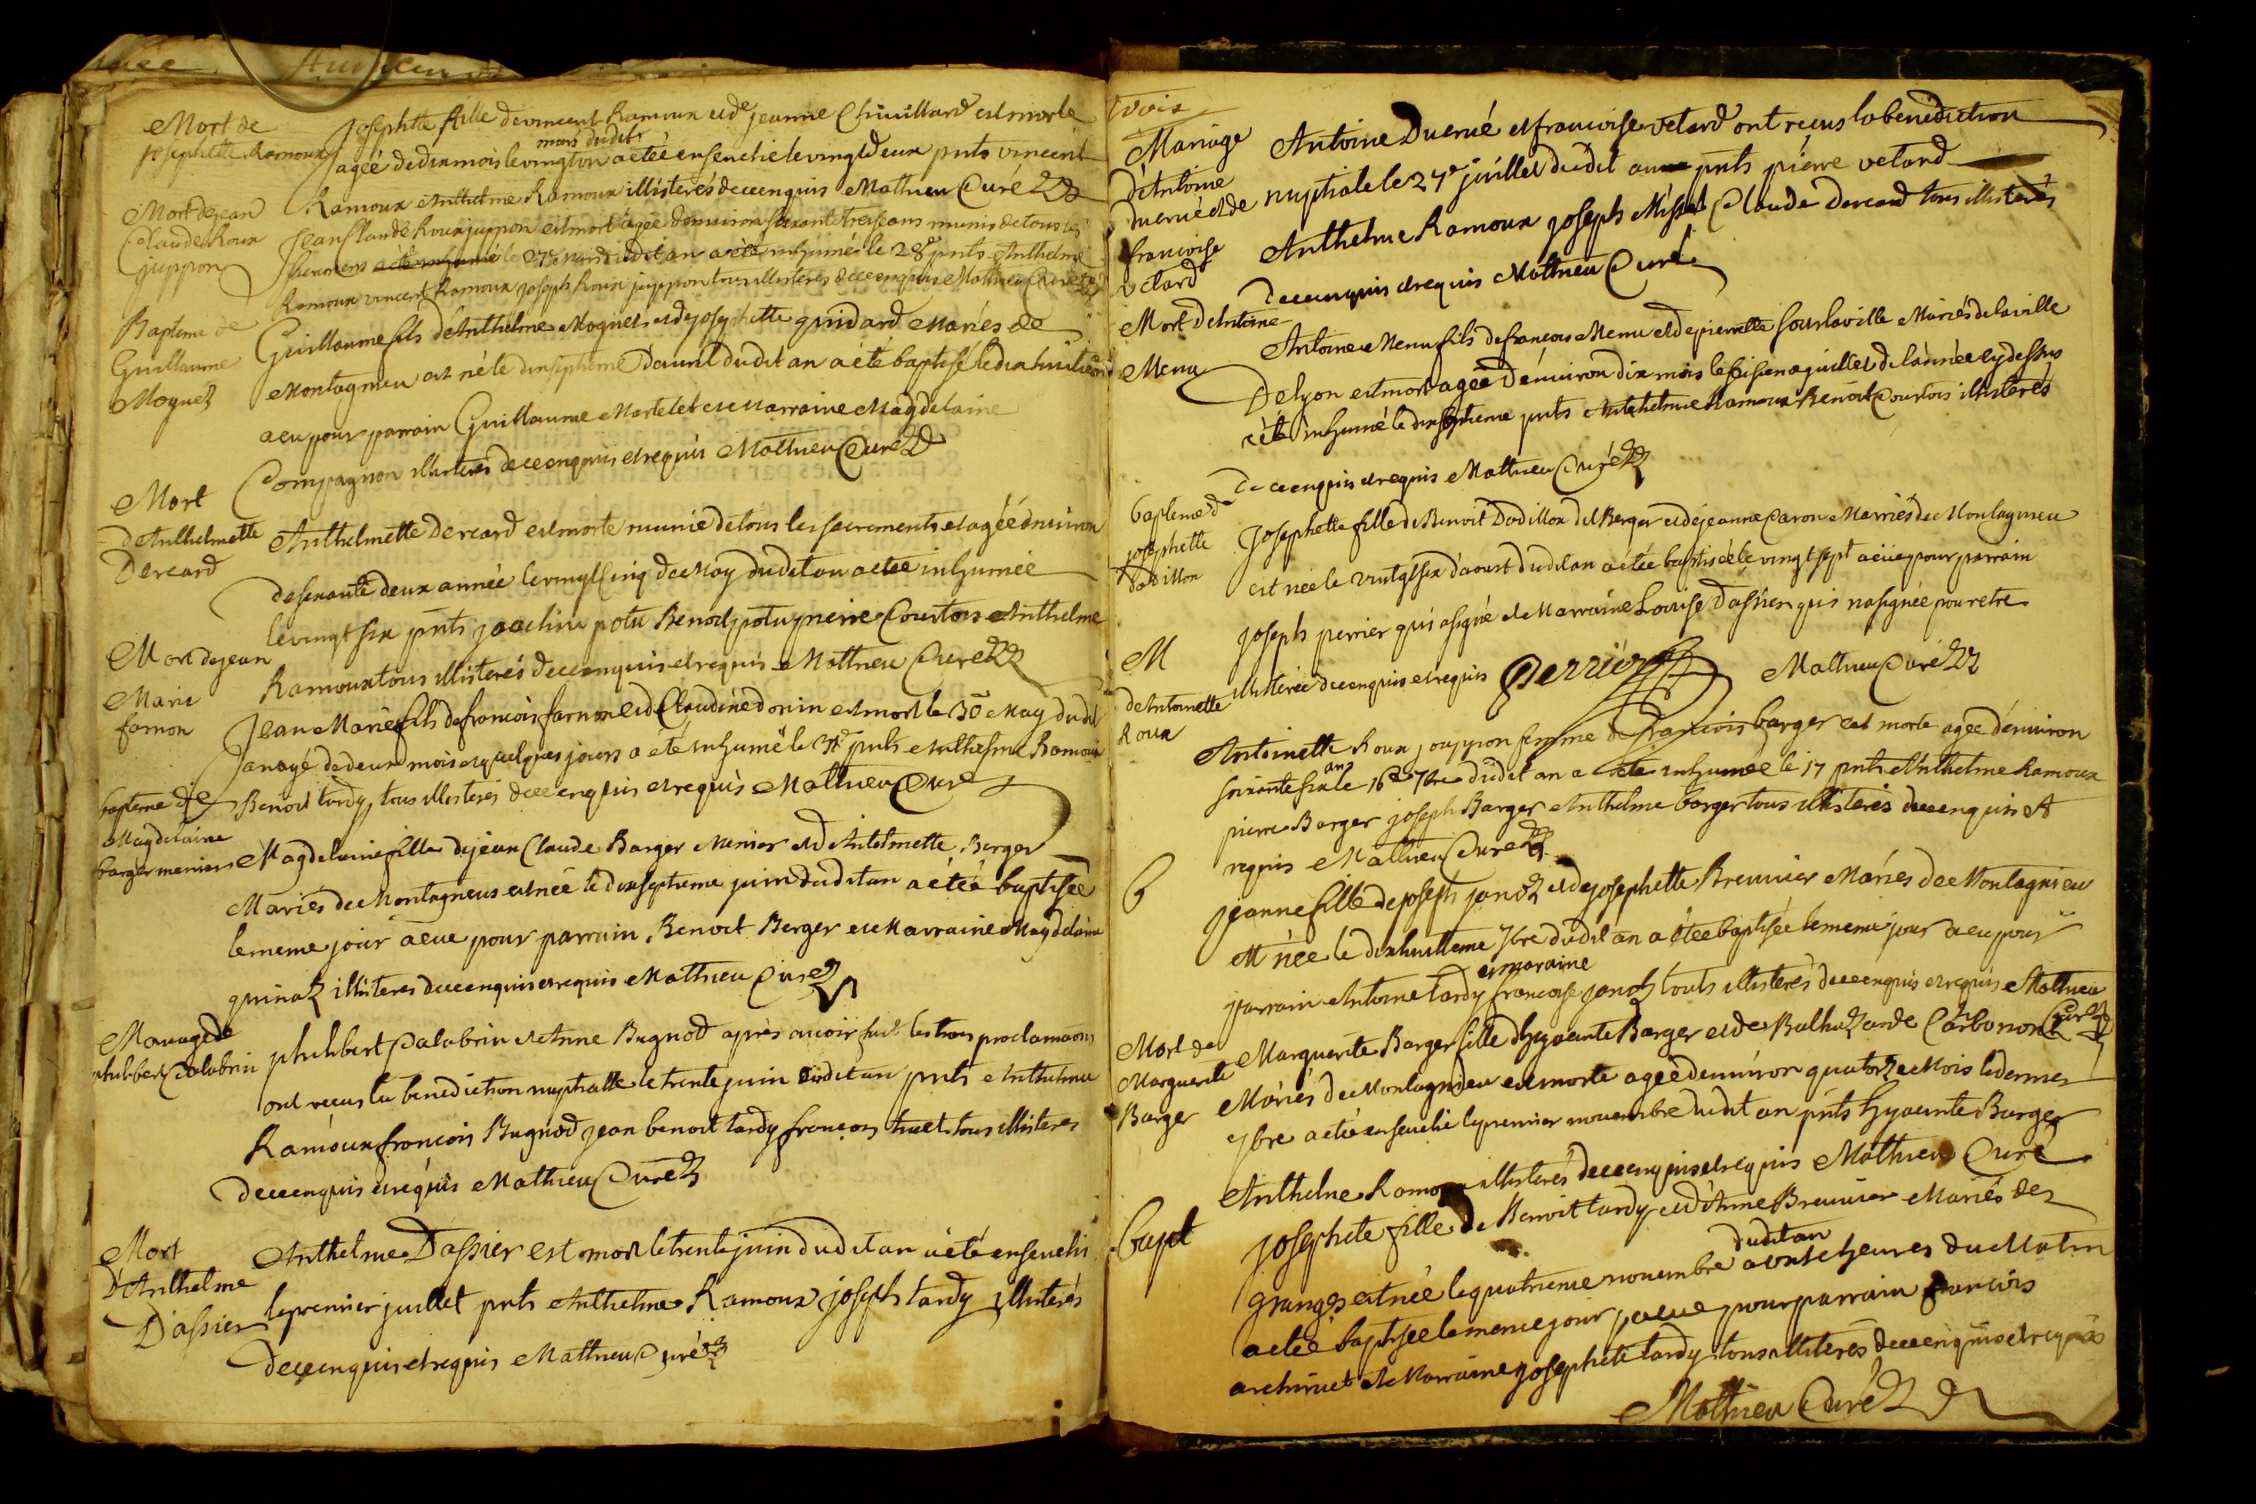 Mort de
josephtte Ramoux
Josephtte fille de vincent Ramoux et de jeanne Chuillard est morte
mars dudit
agée de dix mois le vingt un a etée ensevelie le vingt deux pnts vincent
Ramoux Anthelme Ramoux illiterés de ce enquis Mathieu Curé
Mort de jean
Claude Roux
juppon
Jean Claude Roux juppon est mort agée d'environ soixante treise ans munis de tous les
Sacremens a été inhumé le 27e mars dudit an a été inhumée le 28e pnts Anthelme
Ramoux vincent Ramoux joseph Roux juppon tous illiterés de ce enquis Mathieu Curé
Bapteme de
Guillaume
Moguet
Guillaume fils d'Anthelme Moguet et de josephtte guidard Mariés de
Montagnieu est né le dix septieme d'avril dudit an a été baptisé le dix huitieme
a eu pour parrain Guillaume Martelet et Marraine Magdelaine
Compagnon illiterés de ce enquis et requis Mathieu Curé
Mort
d'Anthelmette
Dercard
Anthelmette Dercard est morte munie de tous les sacrements et agée d'environ
de soixante deux année le vingt cinq de May dudit an a etée inhumée
le vingt six pnts joachim potu Benoit potu pierre Courtois Anthelme
Ramoux tous illiterés de ce enquis et requis Mathieu Curé
Mort de jean
Marie
farnon
Jean Marie fils de francois farnon et de Claudine donin est mort le 30e May dudit
an agé de deux mois et quelques jours a été inhumé le 31e pnts Anthelme Ramoux
Benoit tardy tous illiterés de ce enquis et requis Mathieu Curé
bapteme de
Magdelaine
barger menier
Magdelaine fille de jean Claude Barger Menier et d'Antelmette Berger
Mariés de Montagneux est née le dix septieme juin dudit an a étée baptisée
le meme jour a eue pour parrain Benoit Berger et Marraine Magdelaine
guinatz illiteres de ce enquis et requis Mathieu Curé
Mariage de
philibert Calabrin
philibert Calabrin et Anne Bugnod après avoir fait les trois proclamaons
ont recus la benediction nuptialle le trente juin dudit an pnts Anthelme
Ramoux francois Bugnod jean benoit tardy francois huet tous illiteres
de ce enquis et requis Mathieu Curé
Mort
d'Anthelme
Dassier
Anthelme Dassier est mort le trente juin dudit an a été ensevelis
le premier juillet pnts Anthelme Ramoux joseph tardy illiterés
de ce enquis et requis Mathieu Curé
Mariage
d'Antoine
Duerué et de
francoise
vetard
Antoine Duerué et francoise vetard ont recus la benediction
nuptiale le 27e juillet dudit an pnts pierre vetard
Anthelme Ramoux joseph Misset Claude Dercard tous illiterés
de ce enquis et requis Mathieu Curé
Mort d'Antoine
Menu
Antoine Menu fils de francois Menu et de pierrette Sourlaville Mariés de la ville
de lyon est mort agée d'environ dix mois le seisieme juillet de l'année cy dessus
a été inhumé le dix septieme pnts Anthelme Ramoux Benoit Courtois illiterés
de ce enquis et requis Mathieu Curé
bapteme de
josephtte
dodillon
Josephtte fille de Benoit Dodillon dit Berger et de jeanne Caron Marriés de Montagnieu
est née le vintgt six d'aoust dudit an a étée baptisée le vingt sept a eüe pour parrain
joseph perrier qui a signé et Marraine Louise Dassier qui n'a signée pour etre
illiterée de ce enquis et requis Perrier Mathieu Curé
M
d'Antoinette
Roux
Antoinette Roux jouppon femme de francois barger est morte agée d'environ
soixante six ans le 16e 7bre dudit an a etée inhumée le 17 pnts Anthelme Ramoux
pierre Barger joseph Barger Anthelme barger tous illiterés de ce enquis et
requis Mathieu Curé
B
Jeanne fille de joseph janotz et de josephtte Breunier Mariés de Montagnieu
est née le dix huitieme 7bre dudit an a étée baptisée le meme jour a eu pour
et maraine
parrain Antoine tardy francoise janotz touts illiterés de ce enquis et requis Mathieu
Curé
Mort de
Marguerite
Barger
Marguerite Barger fille d'hyacinte Barger et de Balthazarde Carbonon
Mariés de Montagnieu est morte agée d'environ quatorze Mois le dernier
7bre a etée ensevelie le premier novembre dudit an pnts hyacinte Barger
Anthelme Ramoux illiterés de ce enquis et requis Mathieu Curé
Bapt
josephete fille de Benoit tardy et d'Anne Breunier Mariés des
granges est née le quatrieme novembre dudit an a onze heures du Matin
a etée baptisée le meme jour a eue pour parrain francois
archinet et Marraine josephete tardy tous illiterés de ce enquis et requis
Mathieu Curé